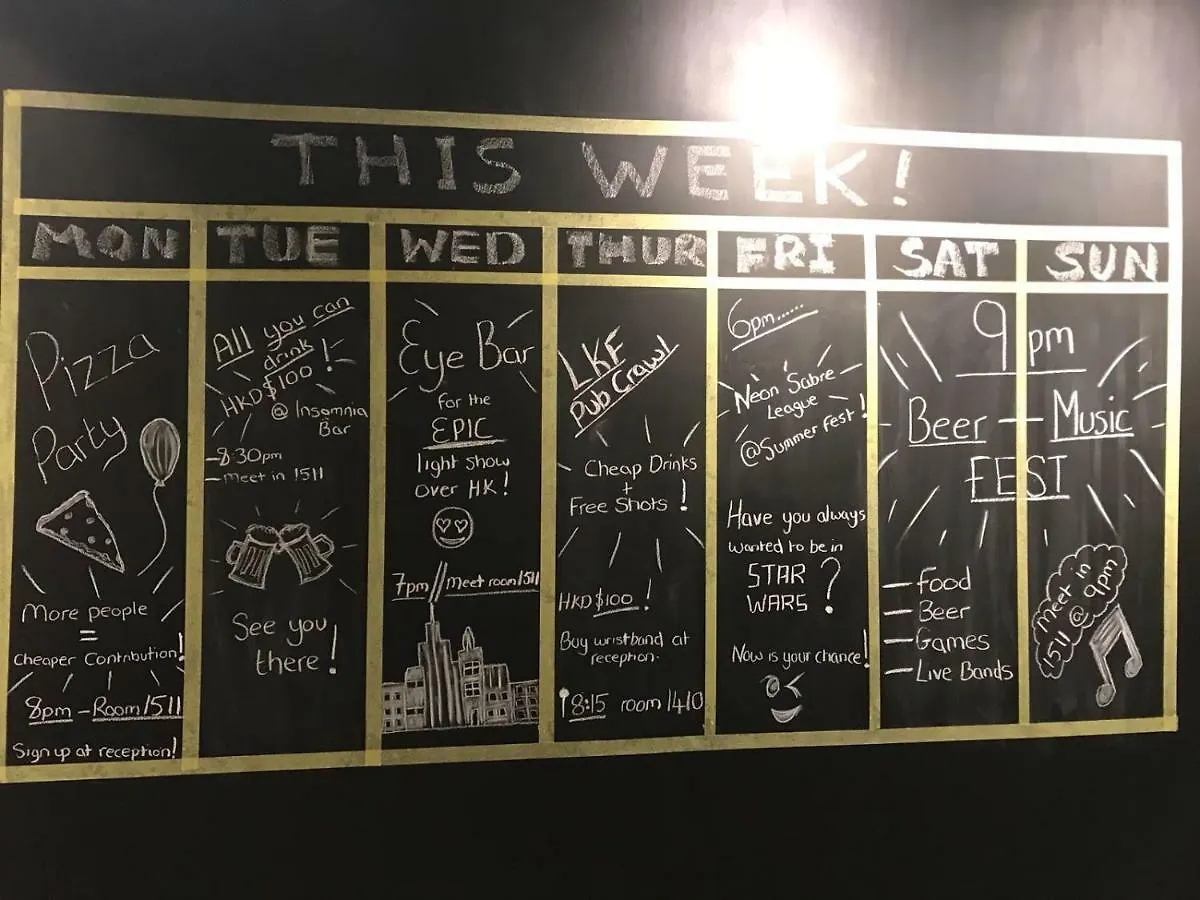 THIS WEEK!
MON
TUE
WED
THUR
FRI
SAT
SUN
Pizza
Party
More people
=
Cheaper Contribution!
8pm - Room 1511
Sign up at reception!
All you can
drink !
HKD$100
@ Insomnia
Bar
- 8:30pm
- Meet in 1511
See you
there!
Eye Bar
for the
EPIC
light show
over HK!
7pm // Meet room 1511
LKF
Pub Crawl
Cheap Drinks
+
Free Shots!
HKD$100!
Buy wristband at
reception.
8:15 room 1410
6pm......
Neon Sabre
League
@Summer fest!
Have you always
wanted to be in
STAR
WARS?
Now is your chance!
9pm
Beer - Music
FEST
- Food
- Beer
- Games
- Live Bands
Meet in
1511 @ 9pm